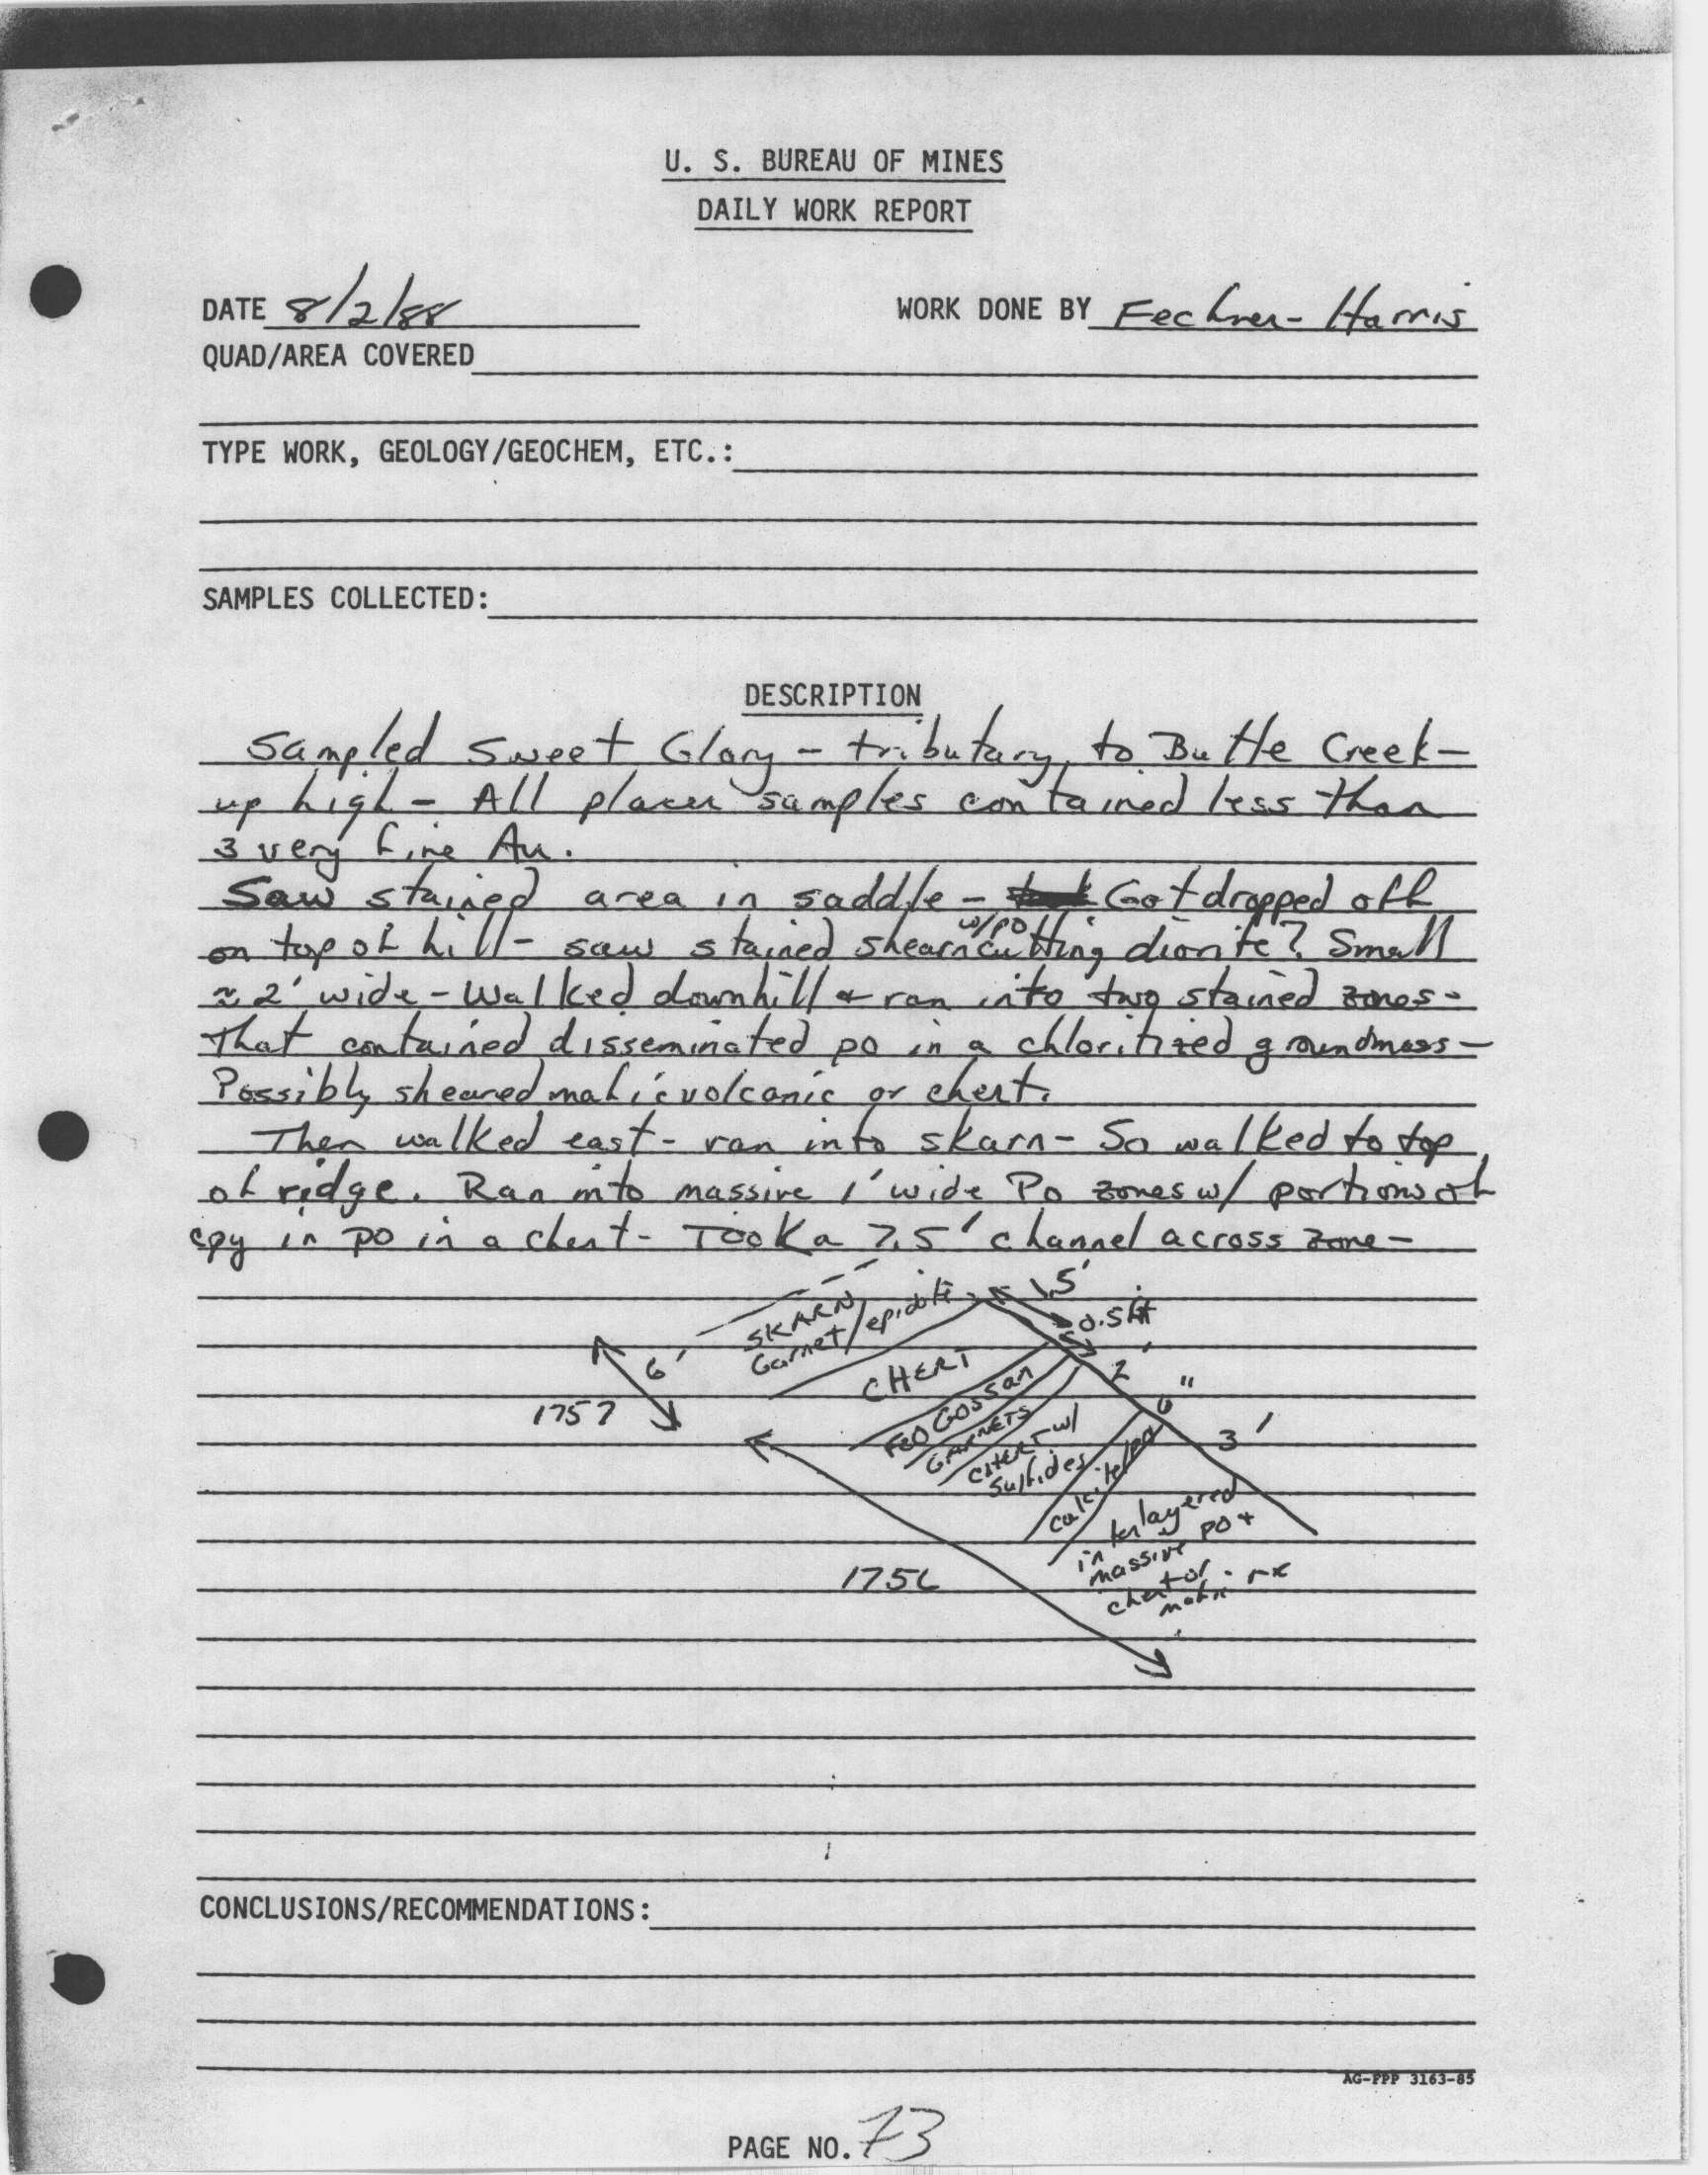 U. S. BUREAU OF MINES
DAILY WORK REPORT
DATE 8/2/88 WORK DONE BY Fechner-Harris
QUAD/AREA COVERED
TYPE WORK, GEOLOGY/GEOCHEM, ETC.:
SAMPLES COLLECTED:
DESCRIPTION
Sampled Sweet Glory - tributary to Butte Creek -
up high - All placer samples contained less than
3 very fine Au.
Saw stained area in saddle - Got dropped off
on top of hill - saw stained shear w/po cutting diorite? Small
≈ 2' wide - Walked downhill & ran into two stained zones -
That contained disseminated po in a chloritized groundmass -
Possibly sheared mafic volcanic or chert.
Then walked east - ran into skarn - So walked to top
of ridge. Ran into massive 1' wide Po zones w/ portions of
cpy in po in a chert - Took a 7.5' channel across zone -
1.5'
SKARN
Garnet/epidote
0.5 ft
6'
CHERT
2'
1757
6"
FeO Gossan
3'
GARNETS
CHERT w/
Sulfides
calcite/po
interlayered
massive po +
chert or
mafic rx
1756
CONCLUSIONS/RECOMMENDATIONS:
AG-FPP 3163-85
PAGE NO. 73